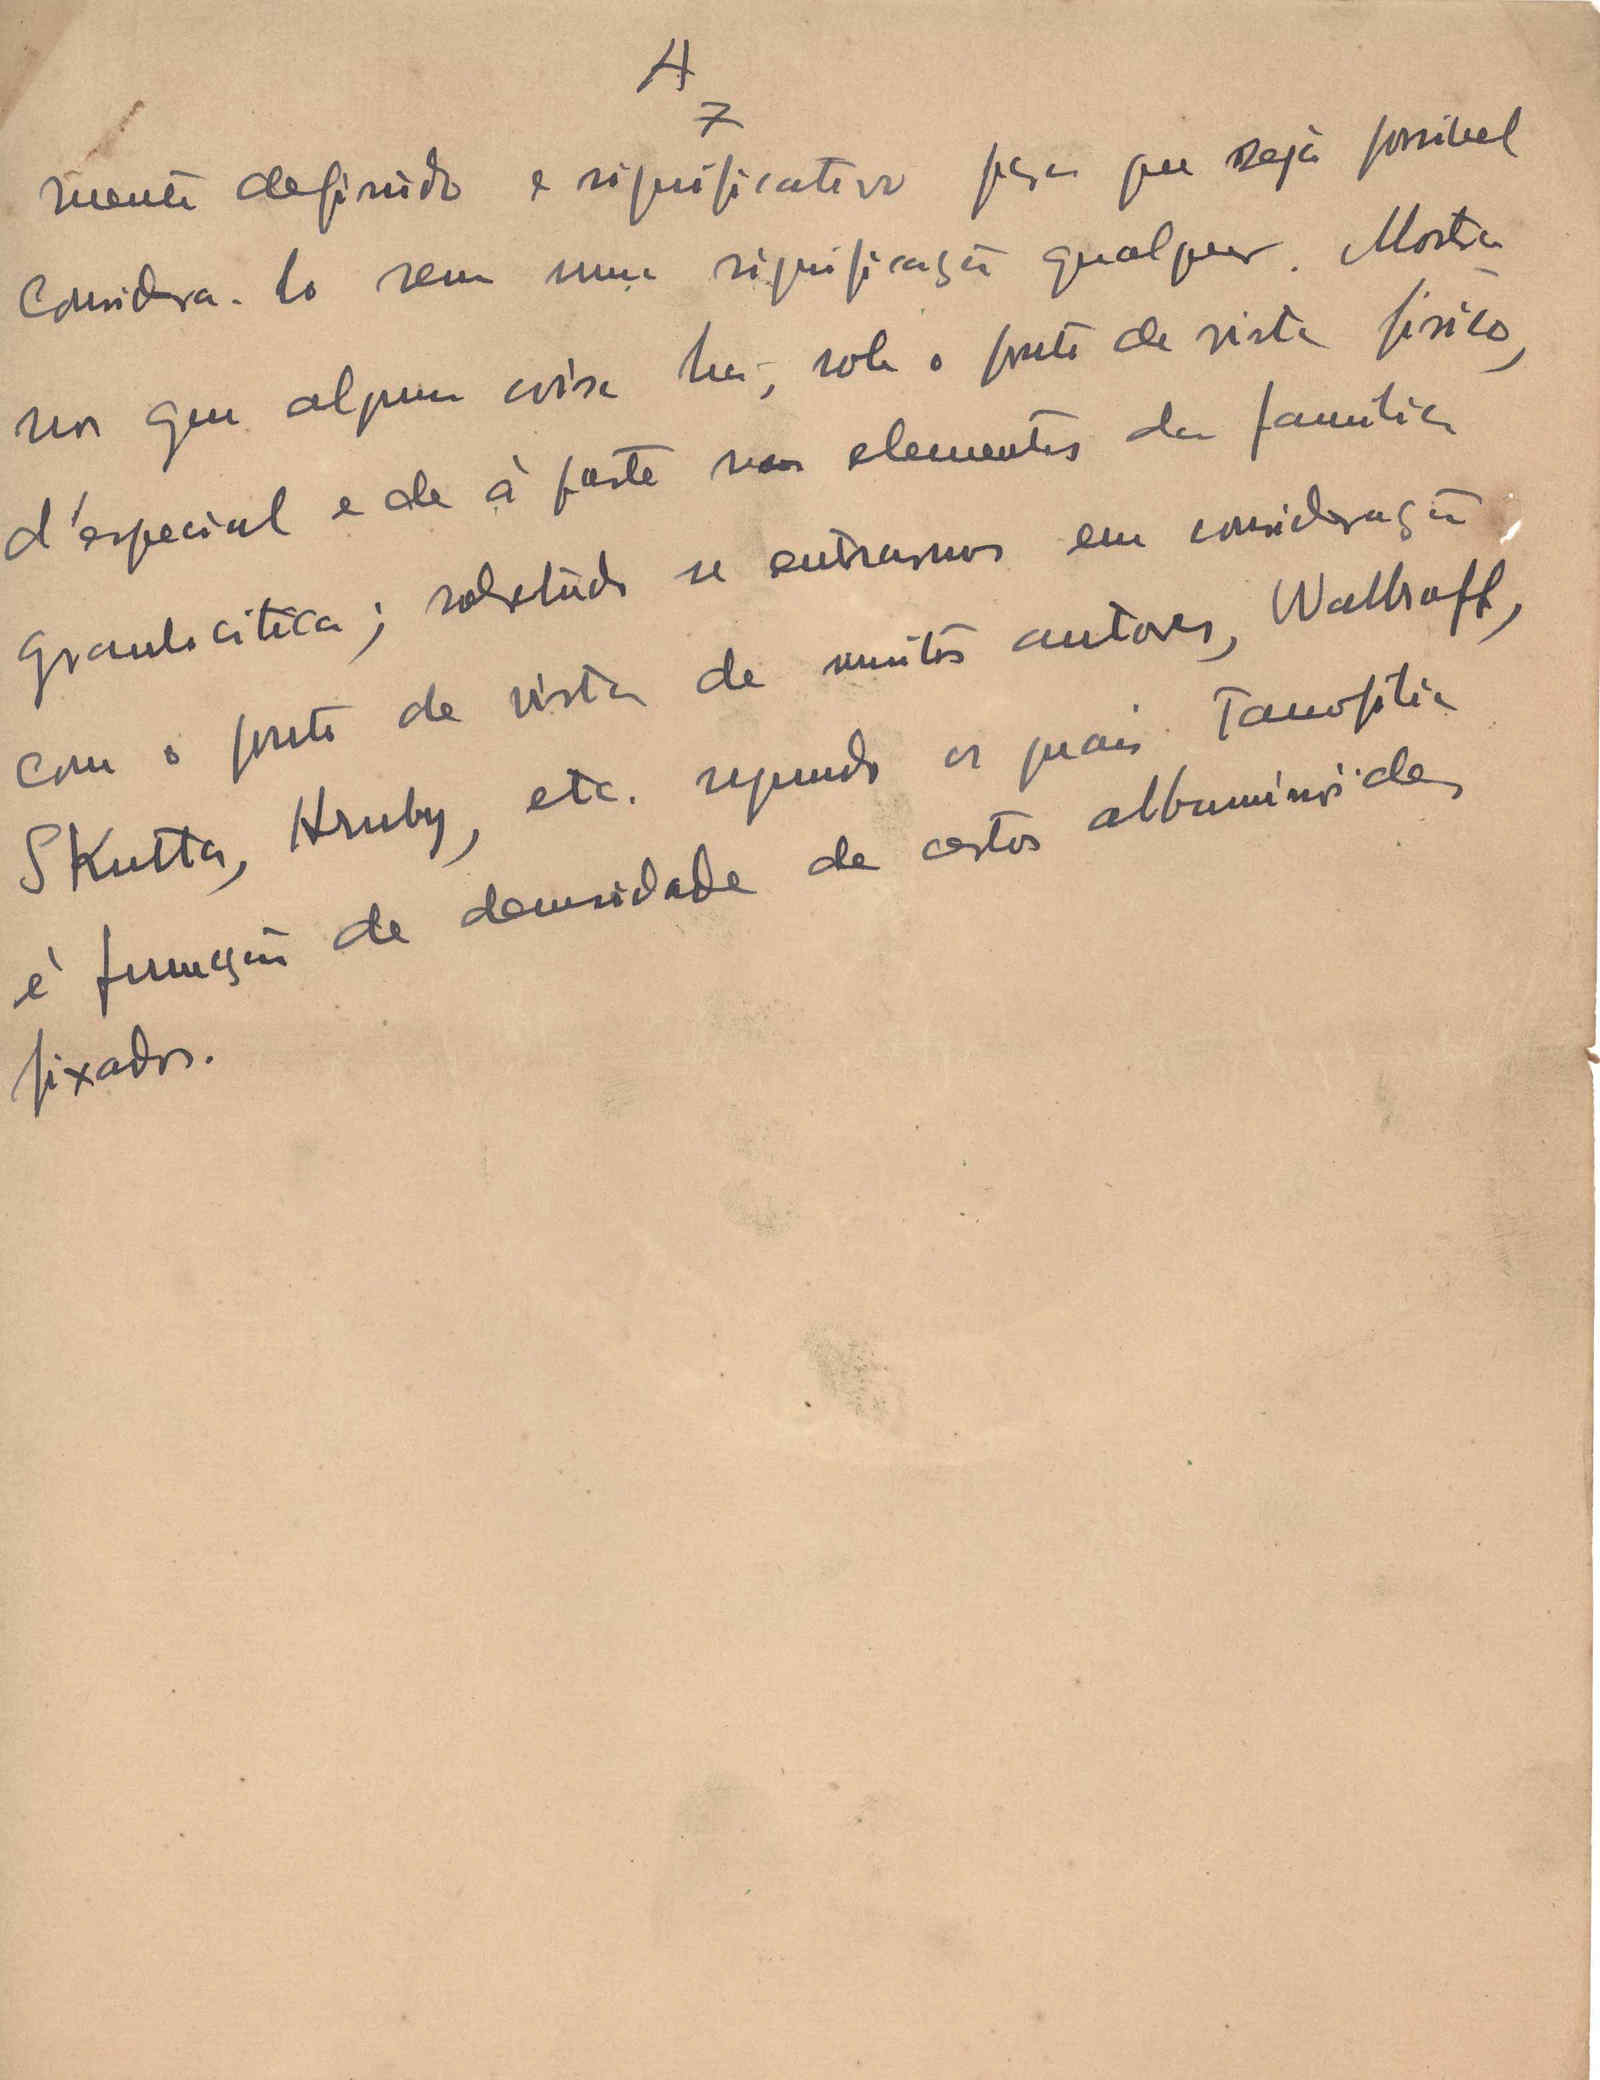 A
7
mente definido e significativo para que seja possivel
considera-lo sem uma significação qualquer. Mostra
nos que alguma coisa ha, sob o ponto de vista fisico,
d'especial e de à parte nos elementos da familia
granulocitica; sobretudo se entrarmos em consideração
com o ponto de vista de muitos autores, Wallraff,
Skutta, Hruby, etc. segundo os quais Tanofilia
é função de densidade de certos albuminóides
fixados.